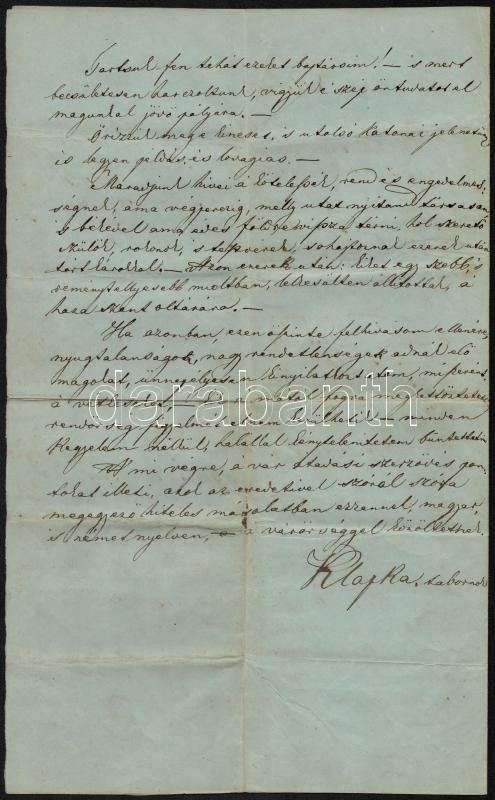 Tartsuk fen tehát ezeket bajtársim! – is mert
becsületesen harczoltunk, vigyük e szép öntudatot el
magunkal jövő pályára. –
Őrizzük meg e kincset, 's utolsó katonai jelenetünk
is legyen példás, és lovagias. –
Maradjunk hívei a kötelesség, rend és engedelmes-
ségnek, ama végperczig, mely utat nyitand társasan
's békével ama édes földre vissza térni, hol szerető
szülők, rokonok, 's testvérek, sohajtanak ezerek után
tárt károkkal. – Azon ezerek után: kiket egy szebb 's
reményteljyesebb multban, lelkesülten állitottak, a
haza szent oltárára. –
Ha azonban, ezen őszinte felhivásom ellenére,
nyugtalanságok, nagy rendetlenségek adnák elő
magokat, ünnepélyesen kinyilatkoztatom, miszerint
a minden
kegyelem nélkül, halállal büntettetni
A mi végre, a vár átadási szerződés pon-
tokat illeti, azok az eredetivel szóról szóra
megegyező hiteles magolatban ezzennel, magyar
is német nyelven, – a várőrséggel közöltetnek.
Klapka. tabornok
darabanth